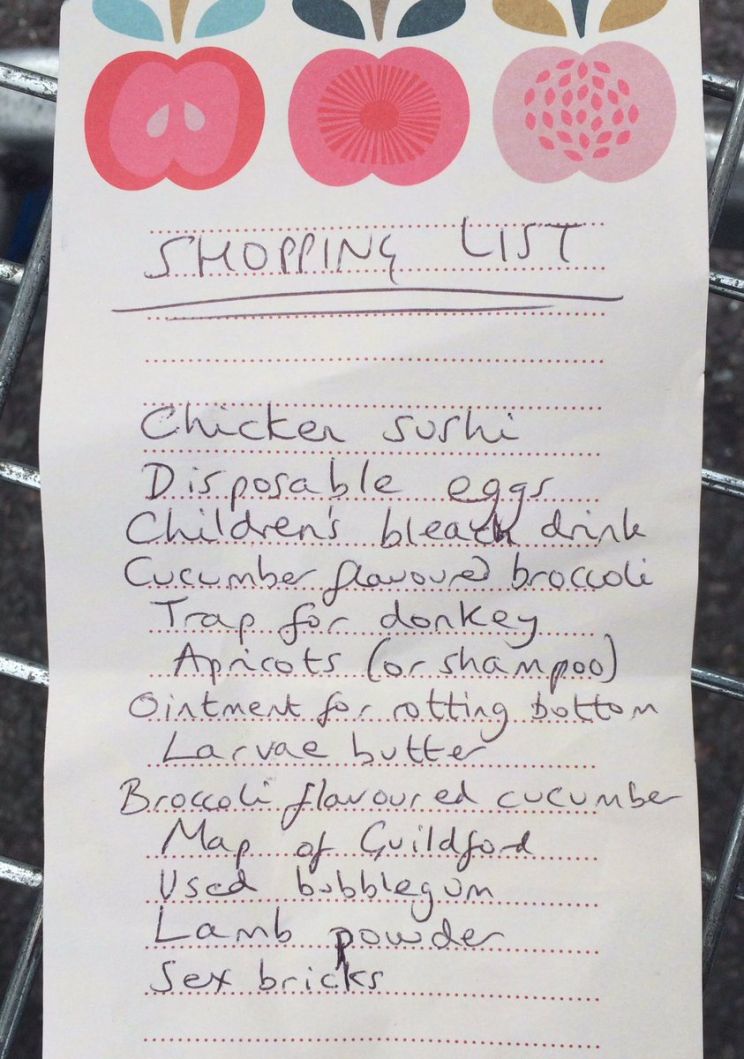 SHOPPING LIST
Chicken sushi
Disposable eggs
Children's bleach drink
Cucumber flavoured broccoli
Trap for donkey
Apricots (or shampoo)
Ointment for rotting bottom
Larvae butter
Broccoli flavoured cucumber
Map of Guildford
Used bubblegum
Lamb powder
Sex bricks